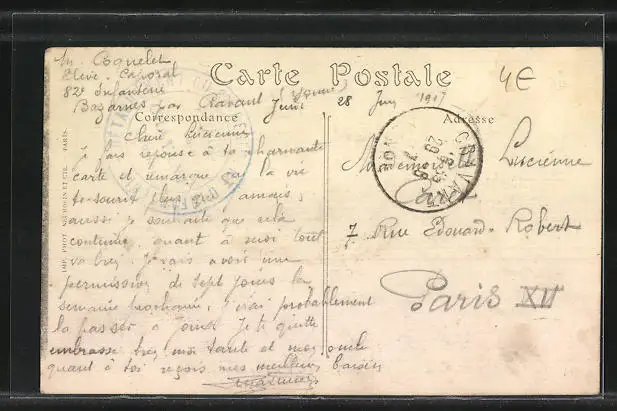 M. Coquelet
Elève Caporal
82e Infanterie
Bazarnes par Cravant (Yonne)
Carte Postale
4E
28 Juin 1917
Correspondance
Adresse
Chère Lucienne
Je fais réponse à ta charmante
carte et remarque que la vie
te sourit plus que jamais,
aussi je souhaite que cela
continue, quant à moi tout
va bien. Je vais avoir une
permission de sept jours la
semaine prochaine, j'irai probablement
la passer à Je te quitte
embrasse bien ma tante et mon oncle
quant à toi reçois mes meilleurs baisers
Mademoiselle Lucienne
7 Rue Edouard Robert
Paris XII
CRAVANT
IMP. PHOT. NEURDEIN ET CIE. PARIS.